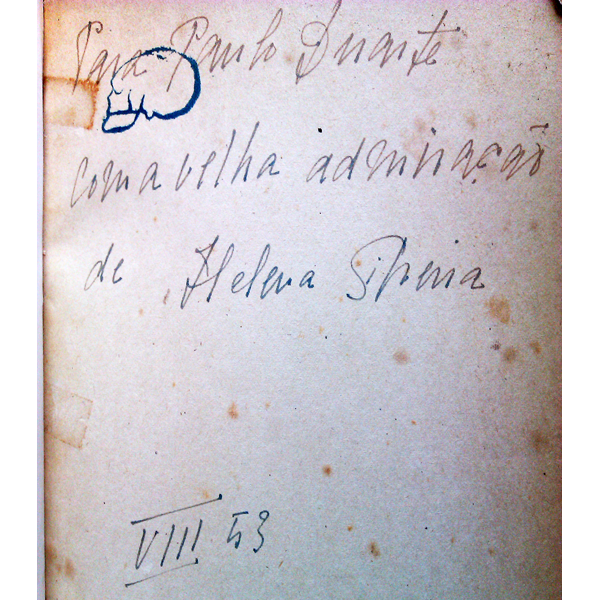 Para Paulo Duarte
com a velha admiração
de Helena Silveira
VIII 53